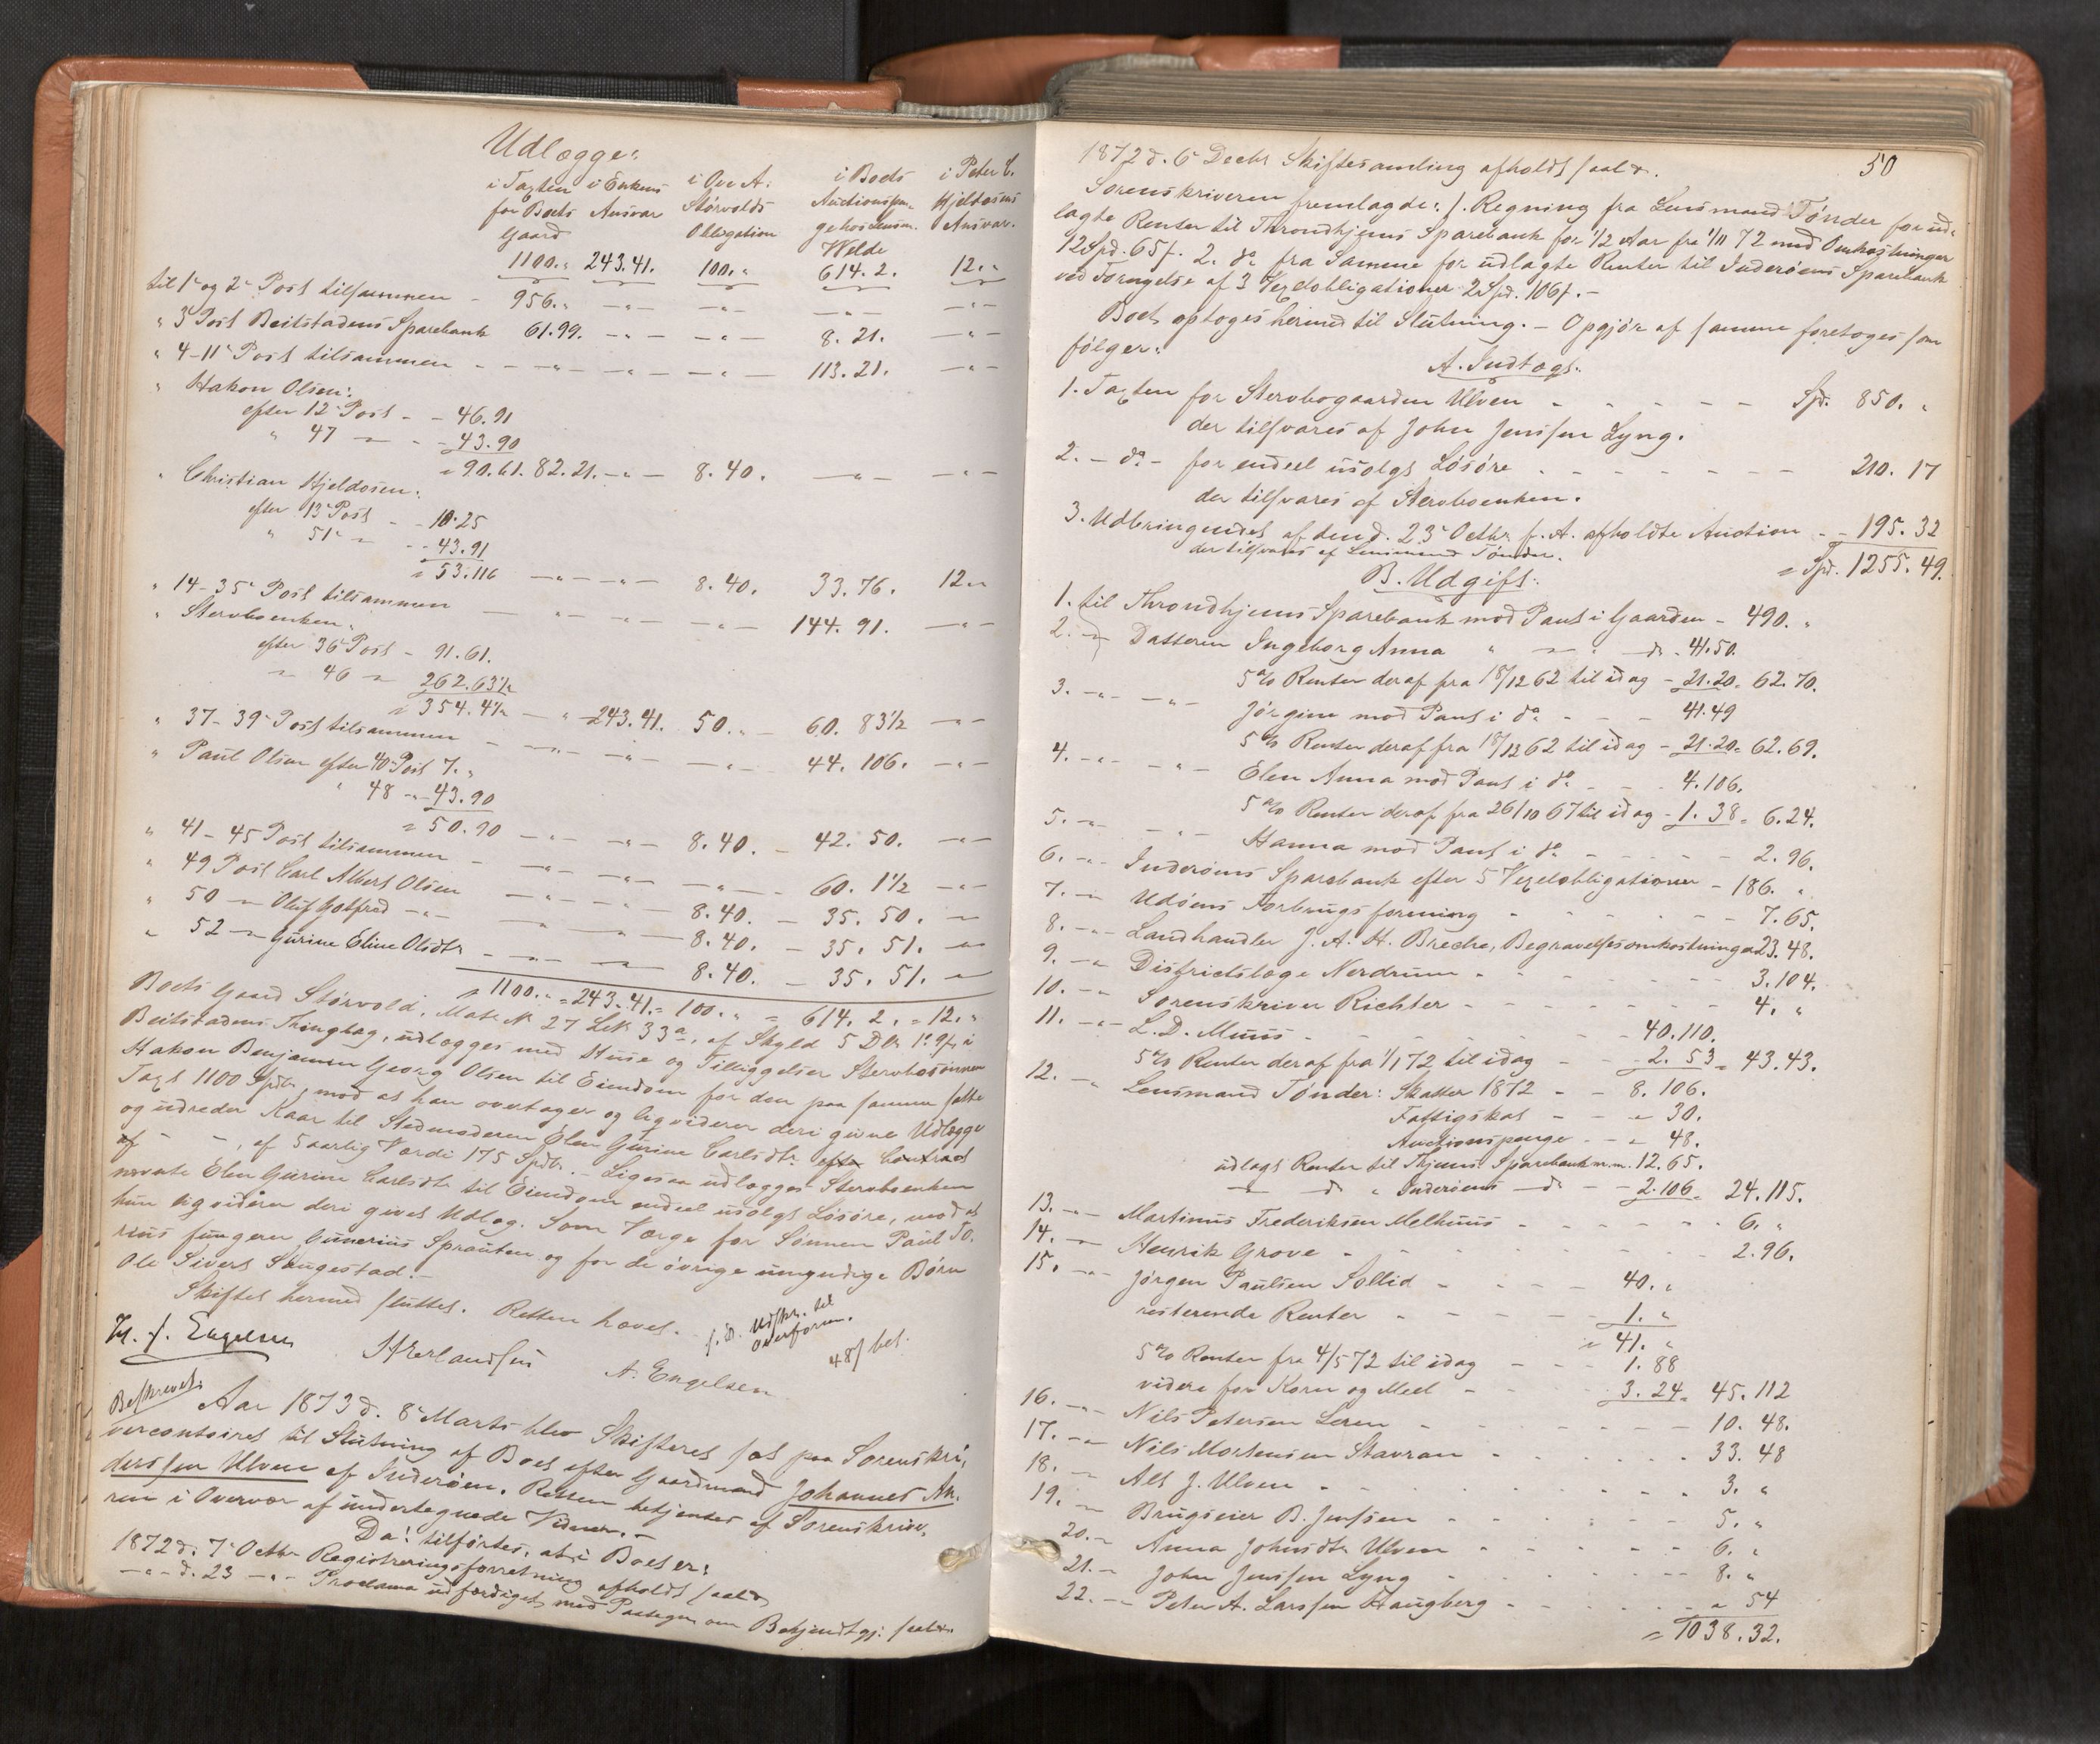 Udlægge:
i Taxten i Enkens i Ove A. i Boets i Peter C.
for Boets Ansvar Størvolds Auctionspen- Hjeldosens
Gaard Obligation ge hos Lensm. Ansvar.
Welde
1100. " 243.41. 100. " 614. 2. 12. "
til 1' og 2' Post tilsammen - 956. " - " - - " - - " - - " -
" 3' Post Beitstadens Sparebank 61.99. - " - - " - 8. 21. - " -
" 4-11' Post tilsammen - - - " - - " - - " - 113. 21. - " -
" Hakon Olsen:
efter 12' Post - - 46.91
" 47 - - 43.90
= 90.61. 82. 21. - " - 8. 40. - " - - " -
" Christian Hjeldosen:
efter 13' Post - - 10.25
" 51' - - 43.91
= 53.116 - " - - " - 8. 40. 33. 76. 12. "
" 14-35' Post tilsammen - - " - - " - - " - 144. 91. - " -
" Stervboenken:
efter 36' Post - 91.61.
" 46 - 262.63½
= 354. 4½ - " 243.41. 50. " - 60. 83½ - " -
" 37-39' Post tilsammen - - " - - " - - " - 44. 106. - " -
" Paul Olsen efter 40' Post 7. "
" 48 - 43.90
= 50.90 - " - - " - 8. 40. - 42. 50. - " -
" 41-45 Post tilsammen - - " - - " - - " - 60. 1½ - " -
" 49 Post Carl Albert Olsen - " - - " - 8. 40. - 35. 50. -
" 50 - Oluf Gotfred - " - - " - 8. 40. - 35. 51. - " -
" 52 - Gurine Eline Olsdtr - - " - 8. 40. - 35. 51. -
= 1100. " = 243.41. = 100. " = 614. 2. = 12. "
Boets Gaard Størvold, Matr. N. 27 Løb. 33a, af Skyld 5 Dlr 1. 9 f i
Beitstadens Thinglag, udlægges med Huse og Tilliggelser Stervbosønnen
Hakon Benjamin Georg Olsen til Eiendom for den paa samme satte
Taxt 1100 Spdr, mod at han overtager og liqviderer deri givne Udlægge
og udreder Kaar til Stedmoderen Elen Gurine Carlsdtr efter Contract
af - - , af 5aarlig Værdi 175 Spdr. - Ligesaa udlægges Stervboenken
nævnte Elen Gurine Carlsdtr til Eiendom endeel usolgt Løsøre, mod at
hun liqviderer deri givet Udlæg. Som Værge for Sønnen Paul To-
rius fungerer Gunerius Sprauten og for de øvrige umyndige Børn
Ole Sivert Skugestad. -
Skiftet hermed sluttet. Retten hævet. -
f. D. Udskr. til
Overform.
48 f bet.
H. J. Engelsen HErlandsen A. Engelsen
Beskrevet.
Aar 1873 d. 8' Marts blev Skifteret sat paa Sorenskri-
vercontoiret til Slutning af Boet efter Gaardmand Johannes An-
derssen Ulven af Inderøen. Retten betjentes af Sorenskrive-
ren i Overvær af undertegnede Vidner. -
Da! tilførtes, at i Boet er:
1872 d. 7' Octbr Registreringsforretning afholdt saal.
- " - d. 23 - " - Proclama udfærdiget med Paategn. om Bekjendtgj: saal.
50
1872 d. 6' Decbr Skiftesamling afholdt saal.
Sorenskriveren fremlagde: 1. Regning fra Lensmand Tønder for ud-
lagte Renter til Throndhjems Sparebank for ½ Aar fra 1/11 72 med Omkostninger
12 Spd. 65 f. 2. do fra Samme for udlagte Renter til Inderøens Sparebank
ved Fornyelse af 3 Vexelobligationer 2 Spd. 106 f. -
Boet optoges hermed til Slutning. - Opgjør af samme foretoges som
følger:
A. Indtægt:
1. Taxten for Stervbogaarden Ulven - - - - - Spd. 850. "
der tilsvares af John Jenssen Lyng.
2. - do - for endeel usolgt Løsøre - - - - - - 210. 17
der tilsvares af Stervboenken.
3. Udbringendet af den d. 23' Octbr f. A. afholdte Auction - - 195. 32
der tilsvares af Lensmand Tønder. = Spd. 1255. 49.
B. Udgift:
1. til Throndhjems Sparebank mod Pant i Gaarden - 490. "
2. - Datteren Ingeborg Anna " - " - do - 41.50.
5% Renter deraf fra 18/12 62 til idag - 21.20 = 62. 70.
3. - " - - " - Jørgine mod Pant i do - - - 41.49
5% Renter deraf fra 18/12 62 til idag - 21.20 = 62. 69.
4. - " - - " - Elen Anna mod Pant i do - - - 4.106.
5% Renter deraf fra 26/10 67 til idag - 1. 38 = 6. 24.
5. - " - - " - Hanna mod Pant i do - - - - - 2. 96.
6. - " - Inderøens Sparebank efter 5 Vexelobligationer - 186. "
7. - Udøens Forbrugsforening - - - - - - 7. 65.
8. - " - Landhandler J. A. H. Brecke, Begravelsesomkostninger 23. 48.
9. - " Districtslæge Nordrum - - - - - - 3. 104.
10. - " Sorenskriver Richter - - - - - - 4. "
11. - " - L. D. Muus - - - - - 40.110.
5% Renter deraf fra 1/1 72 til idag - - 2. 53 = 43.43.
12. - " Lensmand Tønder: Skatter 1872 - - 8. 106.
Fattigskat - - " 30.
Auctionspenge - - " 48.
udlagt Renter til Thjems Sparebank m.m. 12. 65.
- do " Inderøens - do - - 2. 106 = 24. 115.
13. - " - Martinus Frederiksen Melhuus - - - - - 6. "
14. - Henrik Grove - - - - - - 2. 96.
15. - " - Jørgen Paulsen Sollid - - - - 40. "
resterende Renter - - - - - 1. "
= 41. "
5% Renter fra 4/5 72 til idag - - - 1. 88
videre for Korn og Meel - - - 3. 24 = 45. 112
16. - " - Nils Petersen Leren - - - - - 10. 48.
17. - " - Nils Mortensen Stavran - - - - - 33. 48
18. - Alt J. Ulven - - - - - - 3. "
19. - Brugseier B. Jenssen - - - - - - 5. "
20. - Anna Johnsdtr Ulven - - - - - - 6. "
21. - John Jenssen Lyng - - - - - - 8. "
22. - - Peter A. Larssen Haugberg - - - - - " 54
= 1038. 32.